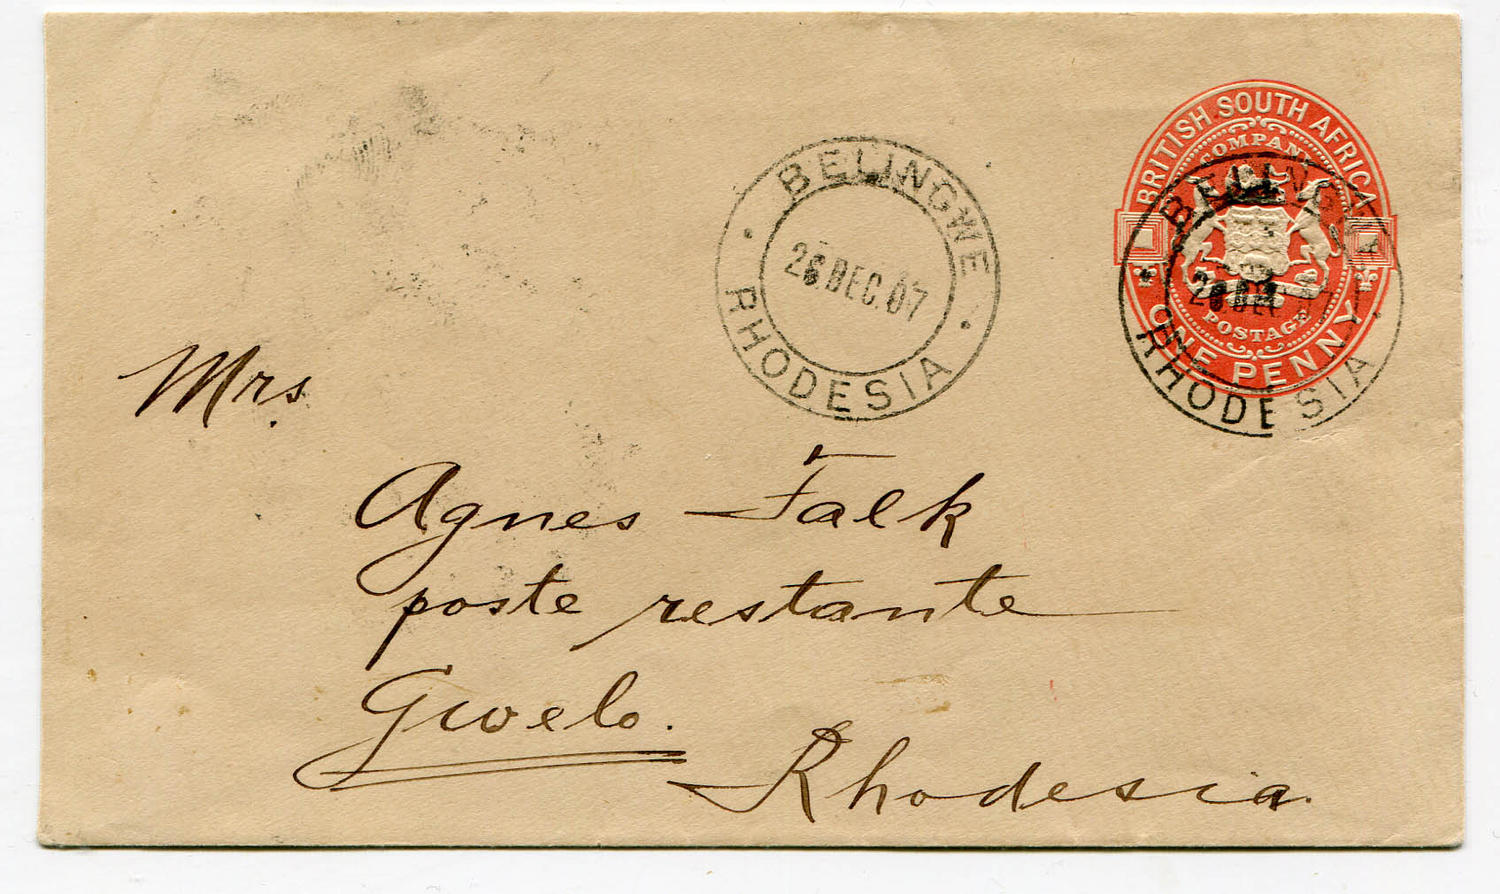 BRITISH SOUTH AFRICA
COMPANY
POSTAGE
ONE PENNY
BELINGWE
26 DEC. 07
RHODESIA
BELINGWE
26 DEC 07
RHODESIA
Mrs.
Agnes Falk
poste restante
Gwelo.
Rhodesia.